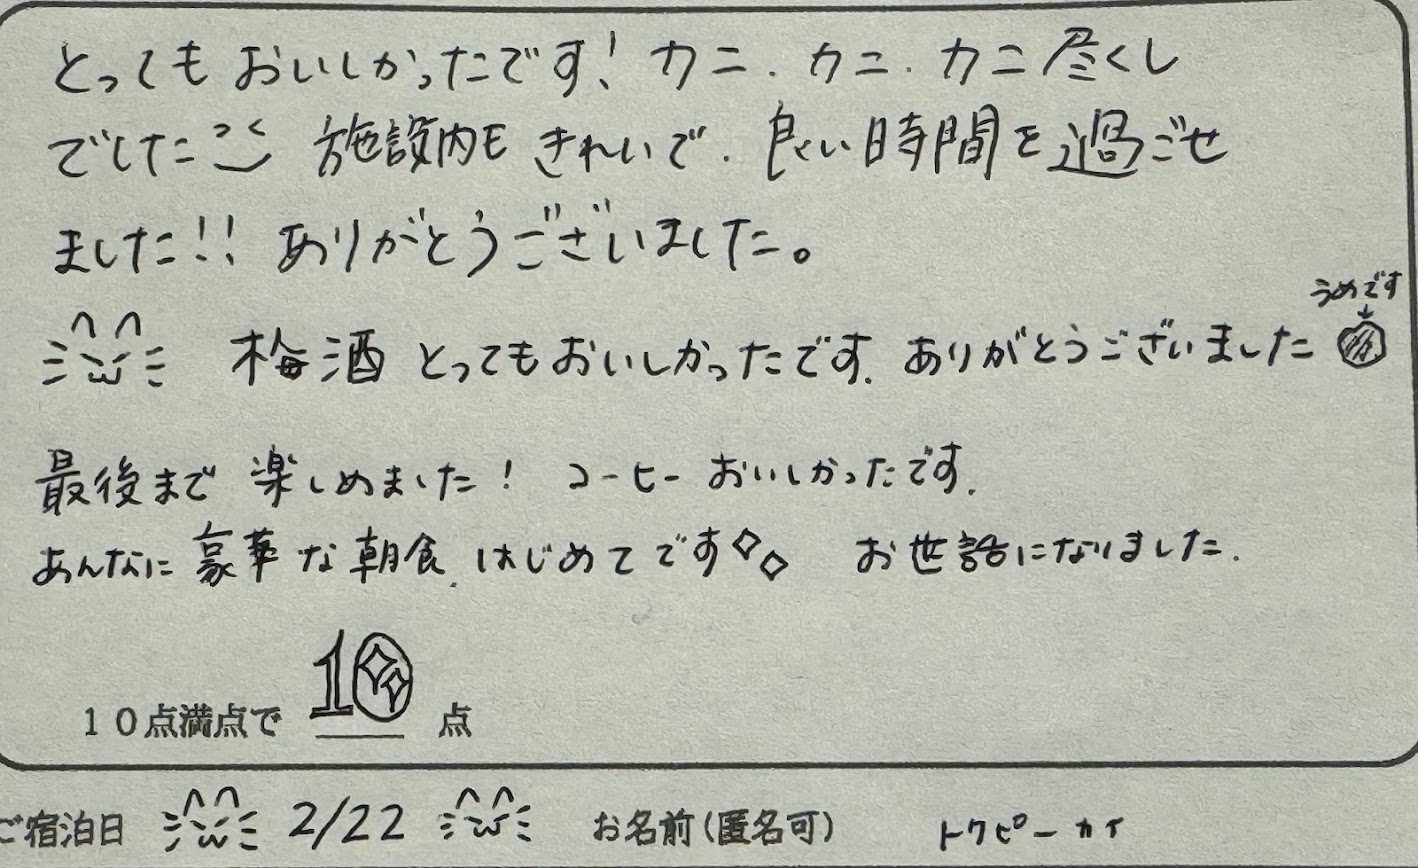 とってもおいしかったです! カニ、カニ、カニ尽くし
でした 施設内もきれいで、良い時間を過ごせ
ました!! ありがとうございました。
うめです
梅酒とってもおいしかったです。ありがとうございました
最後まで楽しめました! コーヒーおいしかったです。
あんなに豪華な朝食、はじめてです お世話になりました。
10点満点で 10 点
ご宿泊日 2/22 お名前(匿名可) トクピーカイ